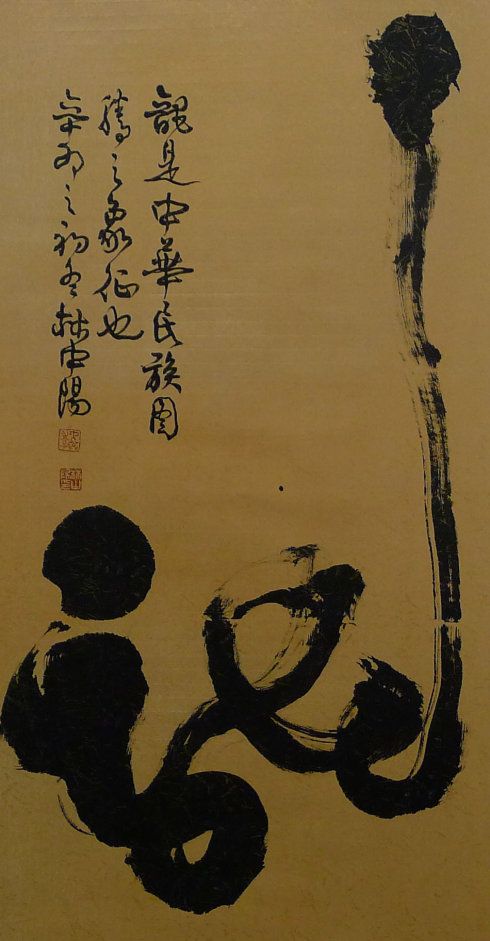 龍
龍是中華民族图
騰之象征也
辛卯之初冬林中陽